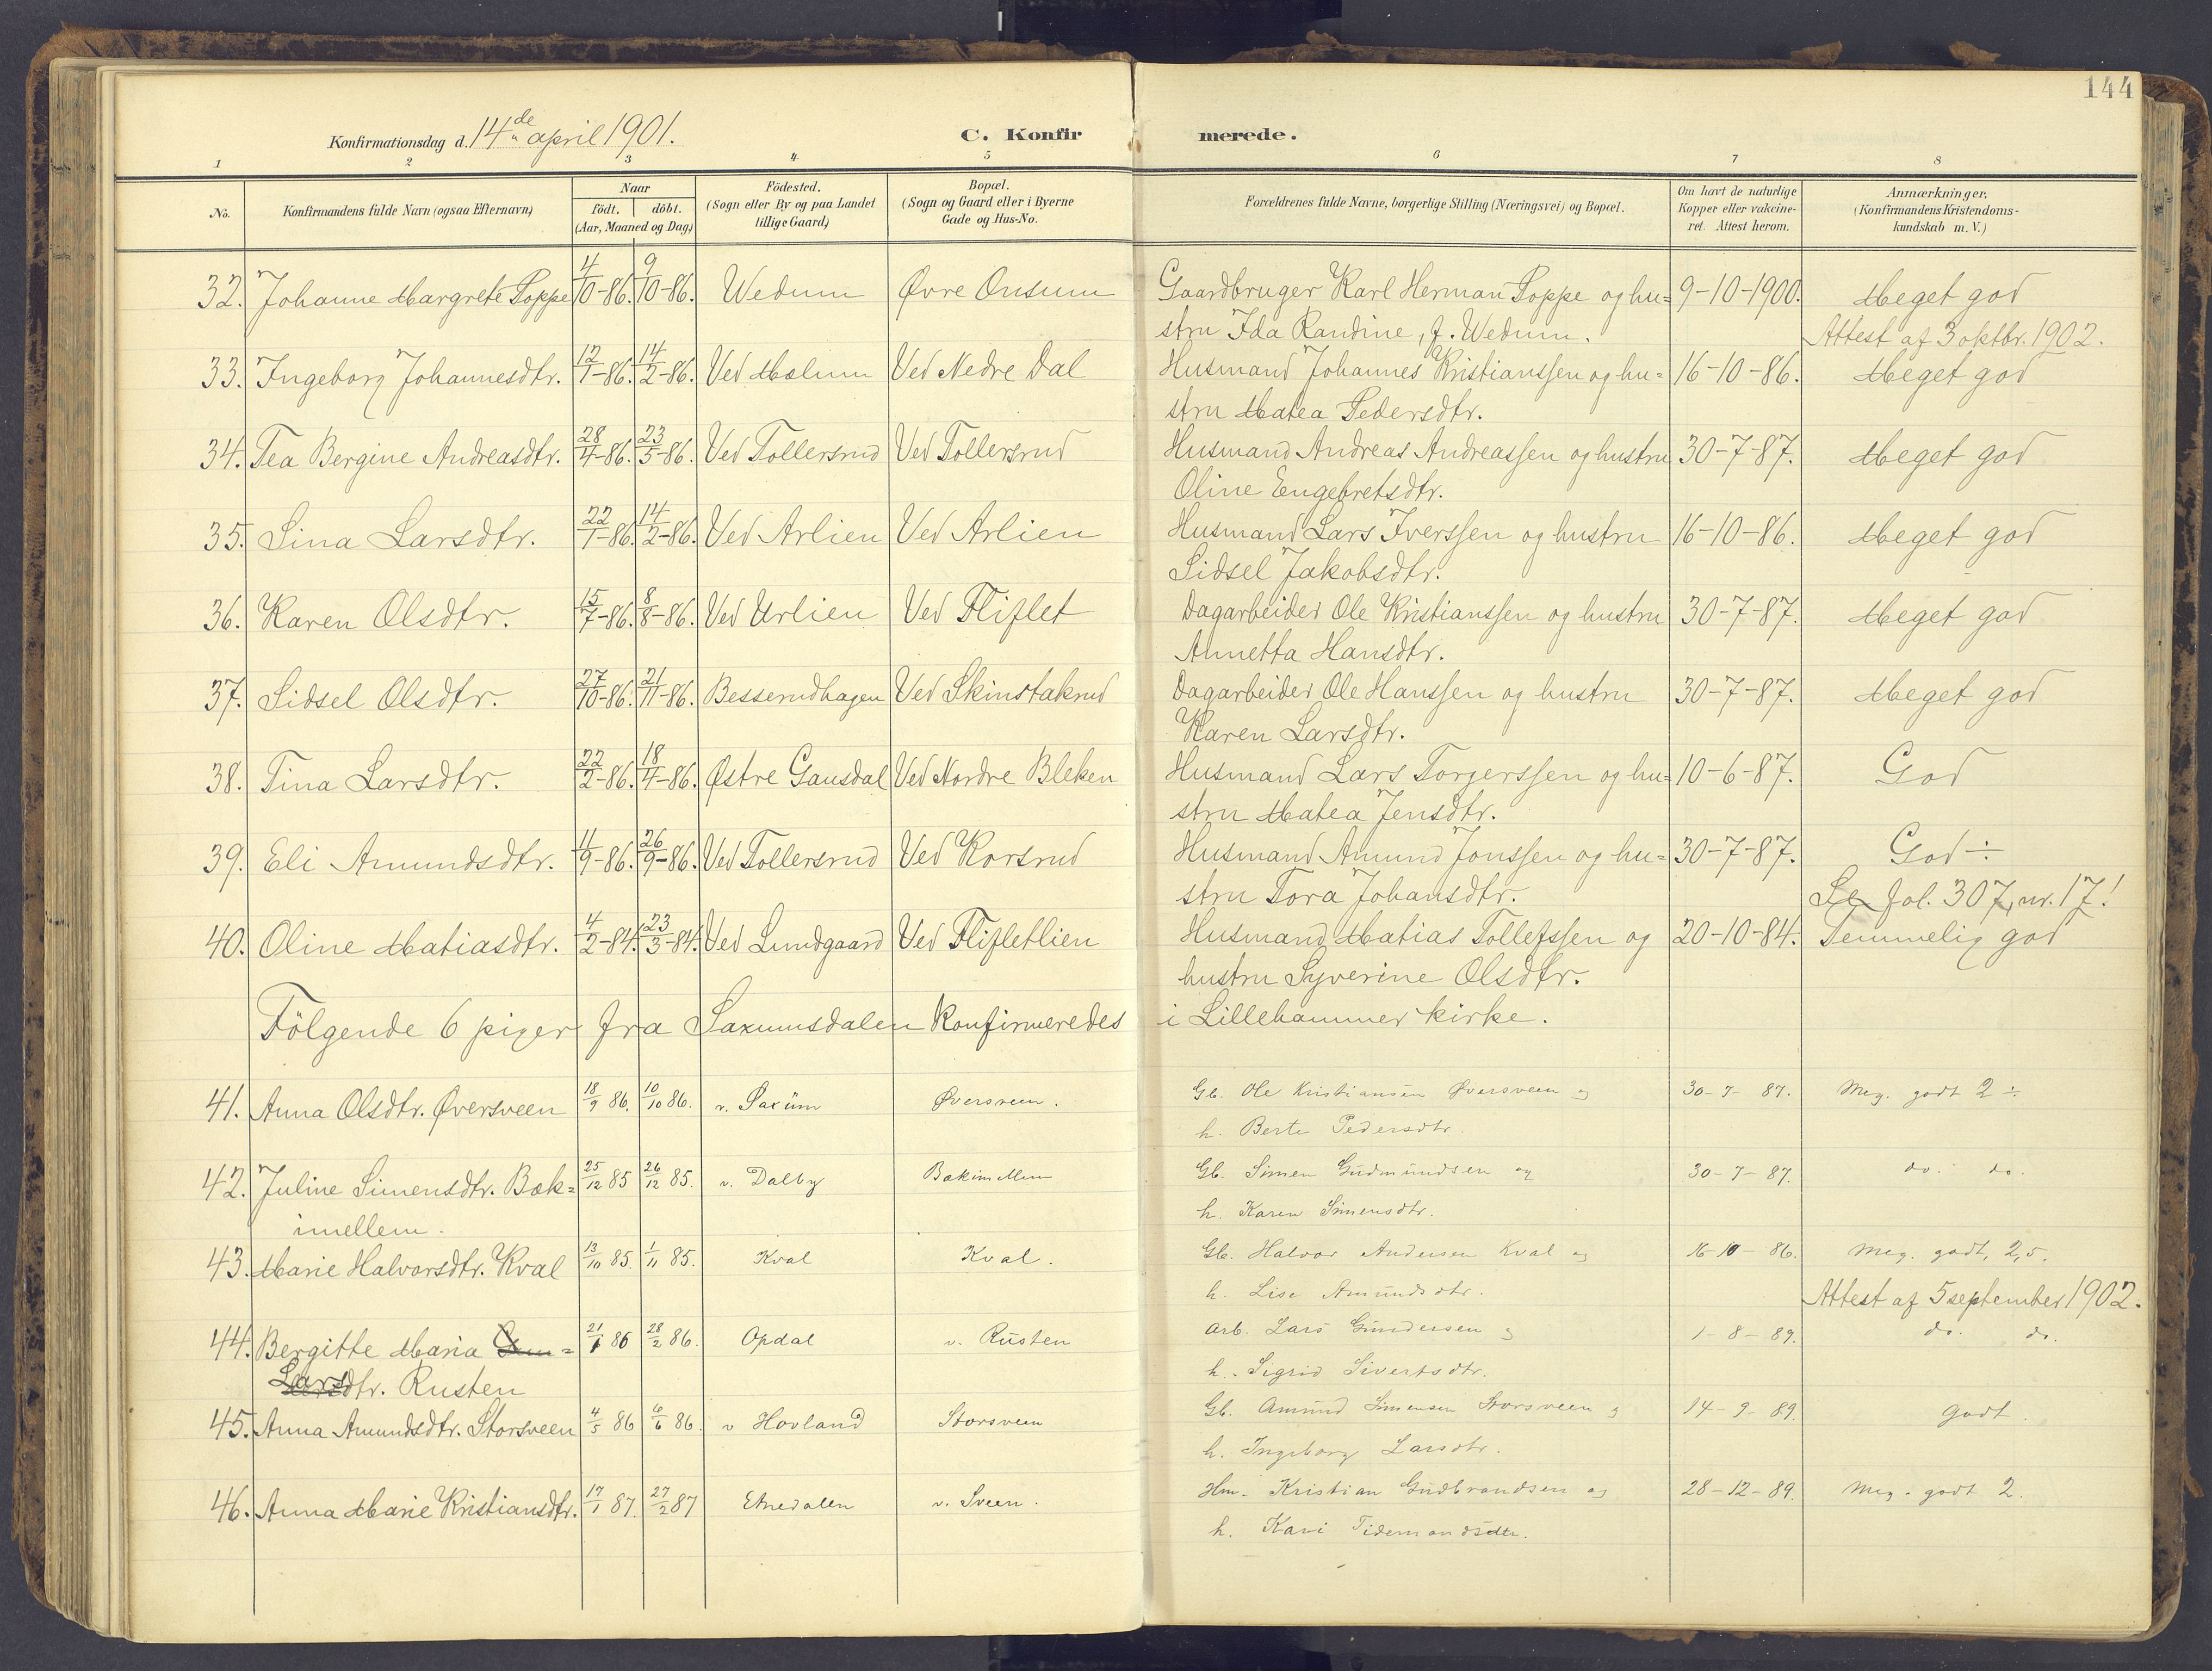 144
Konfirmationsdag d. 14de april 1901.
C. Konfirmerede.
1 2 3 4 5 6 7 8
No.
Konfirmandens fulde Navn (ogsaa Efternavn)
Naar
födt. döbt.
(Aar, Maaned og Dag)
Födested.
(Sogn eller By og paa Landet
tillige Gaard)
Bopæl.
(Sogn og Gaard eller i Byerne
Gade og Hus-No.
Forældrenes fulde Navne, borgerlige Stilling (Næringsvei) og Bopæl.
Om havt de naturlige
Kopper eller vakcine-
ret. Attest herom.
Anmærkninger.
(Konfirmandens Kristendoms-
kundskab m. V.)
32. Johanne Margrete Poppe 4/10-86. 9/10-86. Wedum Øvre Onsum Gaardbruger Karl Herman Poppe og hu= 9-10-1900. Meget god
stru Ida Randine, f. Wedum. Attest af 3 oktbr. 1902.
33. Ingeborg Johannesdtr. 12/1-86. 14/2-86. Ved Mælum Ved Nedre Dal Husmand Johannes Kristianssen og hu= 16-10-86. Meget god
stru Matea Pedersdtr.
34. Tea Bergine Andreasdtr. 28/4-86. 23/5-86. Ved Tollersrud Ved Tollersrud Husmand Andreas Andreassen og hustru 30-7-87. Meget god
Oline Engebretsdtr.
35. Lina Larsdtr. 22/1-86. 14/2-86. Ved Arlien Ved Arlien Husmand Lars Iverssen og hustru 16-10-86. Meget god
Sidsel Jakobsdtr.
36. Karen Olsdtr. 15/7-86. 8/8-86. Ved Urlien Ved Fliflet Dagarbeider Ole Kristianssen og hustru 30-7-87. Meget god
Annetta Hansdtr.
37. Sidsel Olsdtr. 27/10-86. 21/11-86. Besserudhagen Ved Skinstakrud Dagarbeider Ole Hanssen og hustru 30-7-87. Meget god
Karen Larsdtr.
38. Tina Larsdtr. 22/2-86. 18/4-86. Østre Gausdal Ved Nordre Bleken Husmand Lars Torgerssen og hu= 10-6-87. God
stru Matea Jensdtr.
39. Eli Amundsdtr. 11/9-86. 26/9-86. Ved Tollersrud Ved Korsrud Husmand Amund Jonssen og hu= 30-7-87. God ÷
stru Tora Johansdtr. Se fol. 307, nr. 17!
40. Oline Matiasdtr. 4/2-84. 23/3-84. Ved Lundgaard Ved Flifletlien Husmand Matias Tollefssen og 20-10-84. Temmelig god
hustru Syverine Olsdtr.
Følgende 6 piger fra Saxumsdalen konfirmeredes i Lillehammer kirke.
41. Anna Olsdtr. Øversveen 18/9 86. 10/10 86. v. Saxum Øversveen. Gb. Ole Kristiansen Øversveen og 30-7-87. Meg. godt 2 ÷
h. Berte Pedersdtr.
42. Juline Simensdtr. Bæk= 25/12 85 26/12 85. v. Dalby Bækimellem Gb. Simen Gudmundsen og 30-7-87. do. do.
imellem. h. Karen Simensdtr.
43. Marie Halvorsdtr. Kval 13/10 85. 1/11 85. Kval Kval. Gb. Halvor Andersen Kval og 16-10-86. Meg. godt, 2,5.
h. Lise Amundsdtr. Attest af 5 september 1902.
44. Bergitte Maria 21/1 86 28/2 86. Opdal v. Rusten Arb. Lars Gundersen og 1-8-89. do. do.
Larsdtr. Rusten h. Sigrid Sivertsdtr.
45. Anna Amundsdtr. Storsveen 4/5 86 6/6 86. v Hovland Storsveen Gb. Amund Simensen Storsveen og 14-9-89. Godt.
h. Ingeborg Larsdtr.
46. Anna Marie Kristiansdtr. 17/1 87. 27/2 87 Etnedalen v. Sveen. Hm. Kristian Gudbrandsen og 28-12-89. Meg. godt 2.
h. Kari Tidemandsdtr.